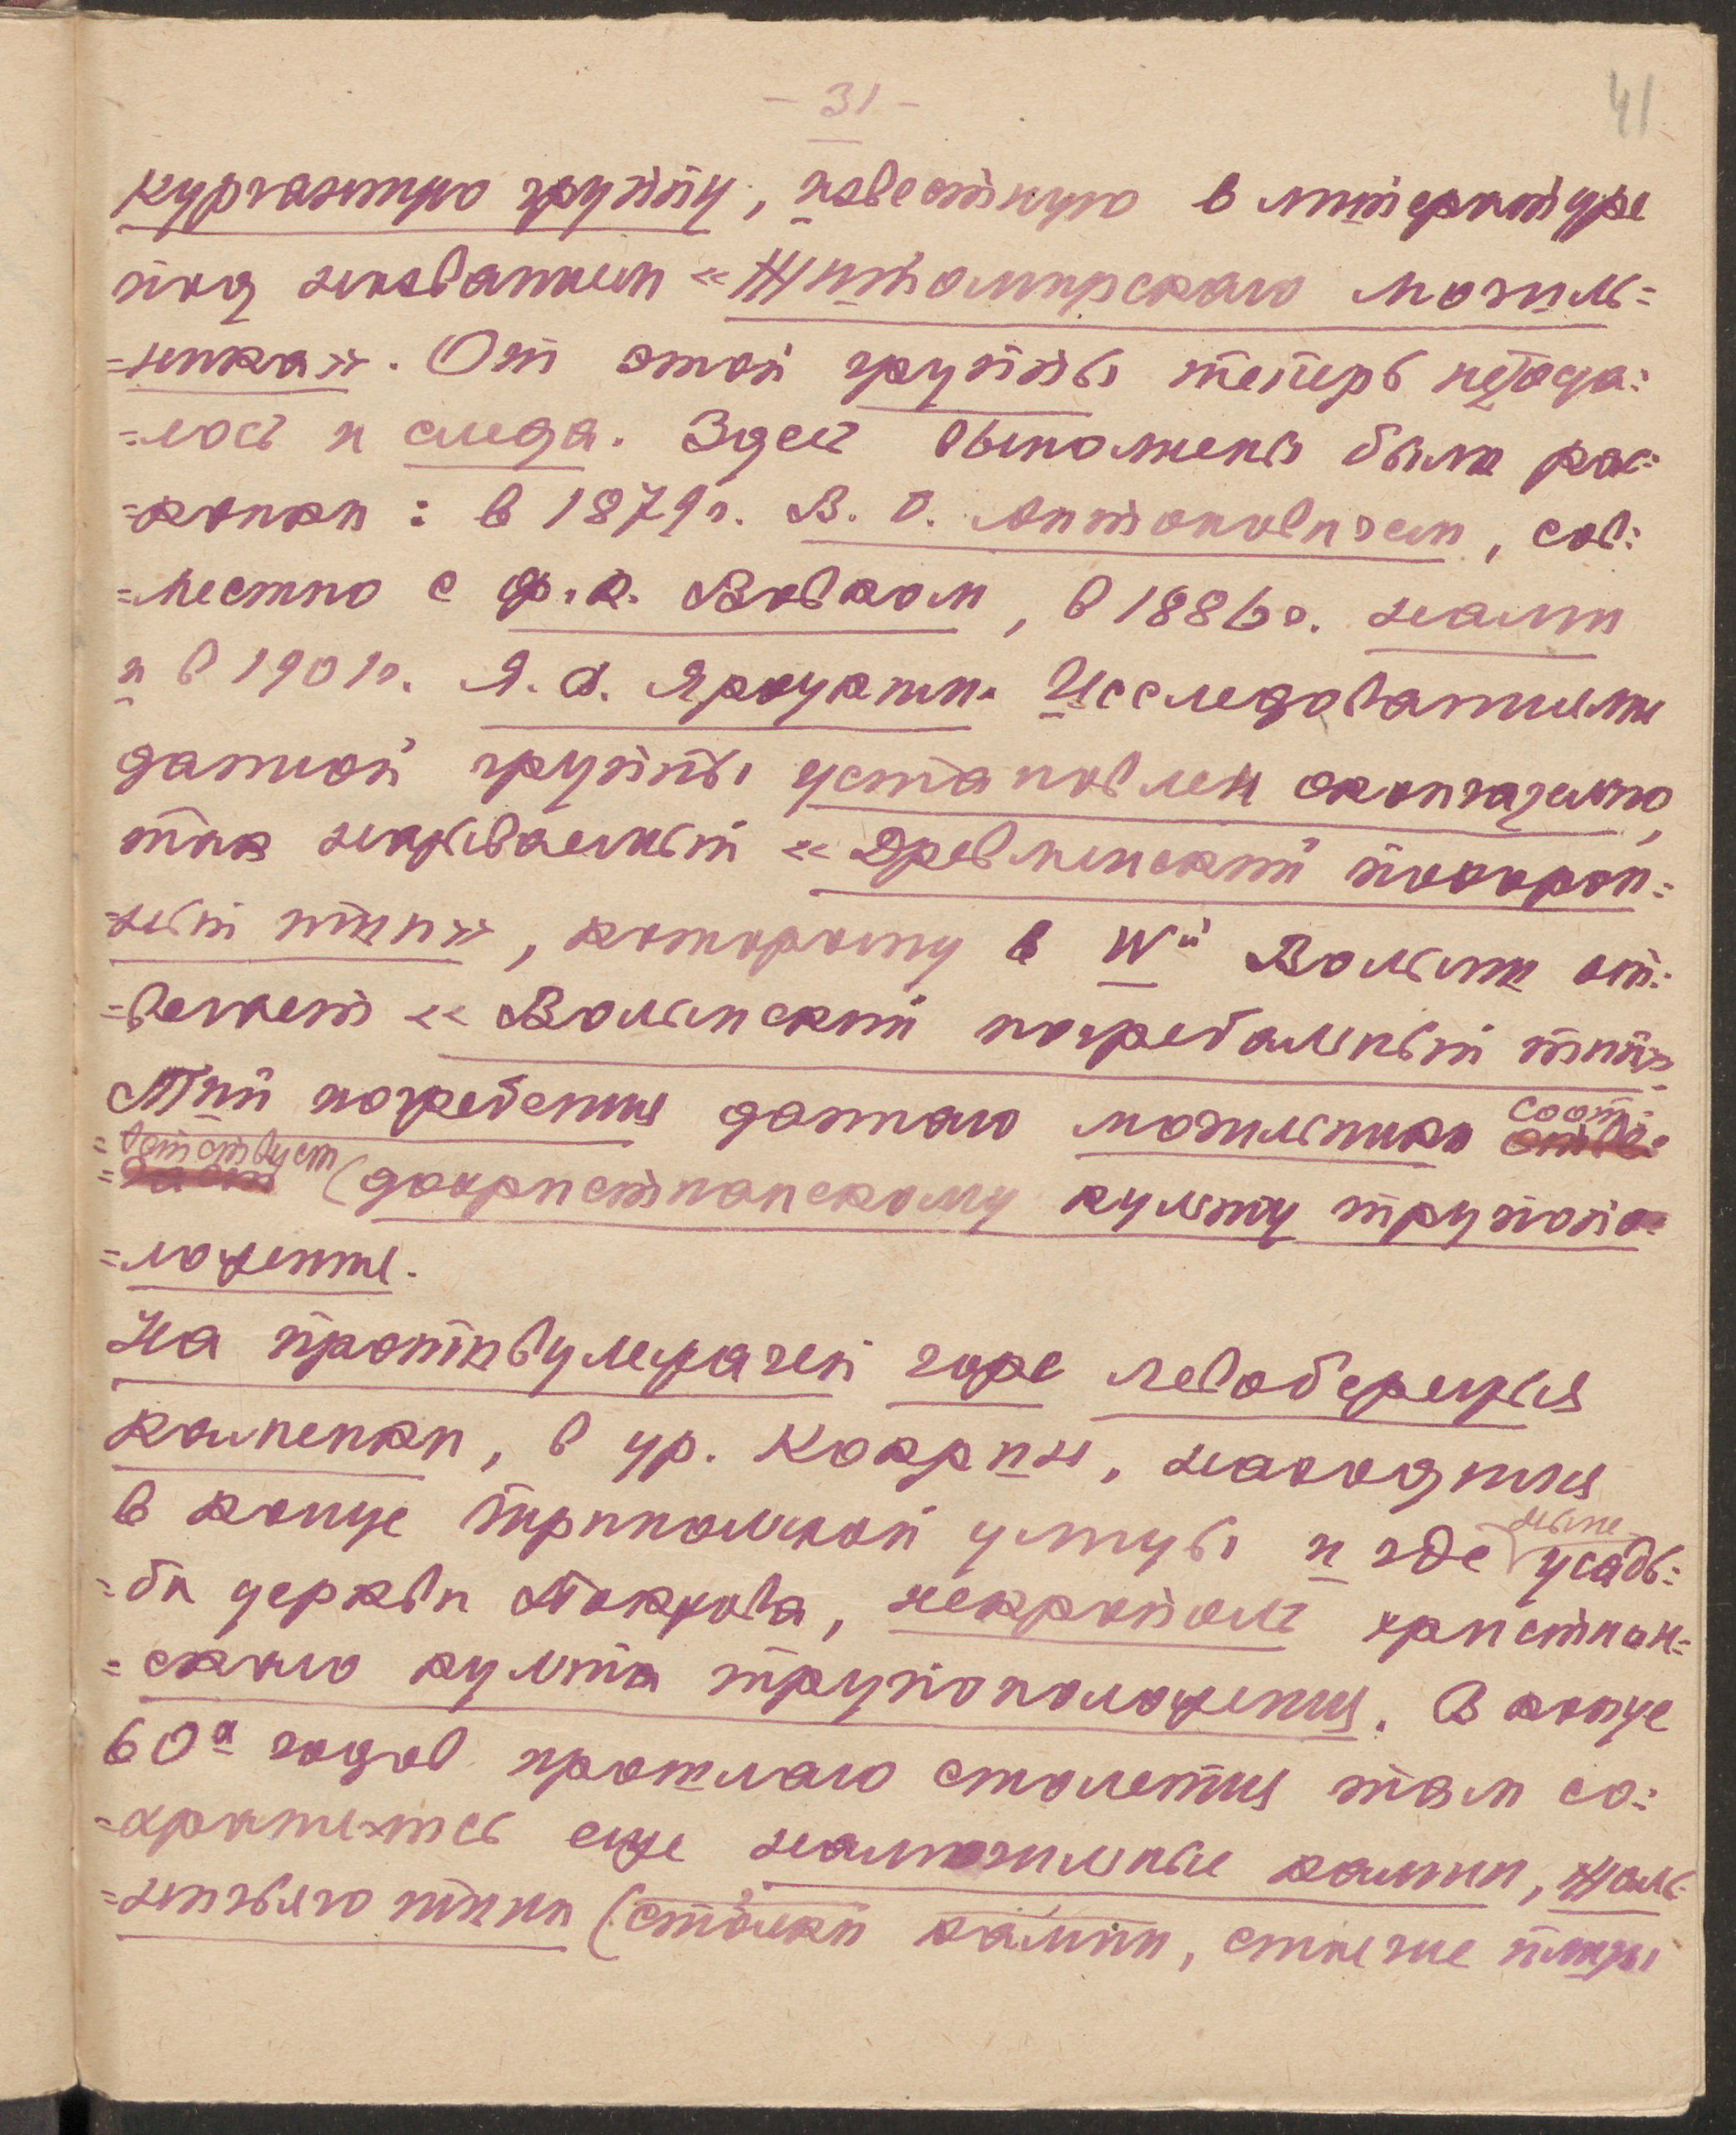 - 31 -
41
курганную группу, известную в литературе
под названием «Житомирскаго могиль=
=ника». От этой группы теперь не оста=
=лось и следа. Здесь выполнены были рас=
=копки: в 1879 г. В. Б. Антоновичем, сов=
=местно с Ф. К. Вовком, в 1886 г. нами
и в 1901 г. Я. В. Яроцким. Исследованиями
данной группы установлен окончательно,
так называемый «Древлянский похорон=
=ный тип», которому в W й Волыни от=
=вечает «Волынский погребальный тип».
Тип погребения даннаго могильника соот=
=ветствует (дохристианскому культу трупопо=
=ложения.
На противулежачей горе левобережья
Каменки, в ур. Кокрин, находится
в конце Трипольской улицы и где ныне усадь=
=ба церкви Иакова, некрополь христиан=
=скаго культа трупоположения. В конце
60х годов прошлаго столетия там со=
=хранялись еще намогильные камни, Жаль=
=ничьяго типа (стойки камни, стоячие плиты